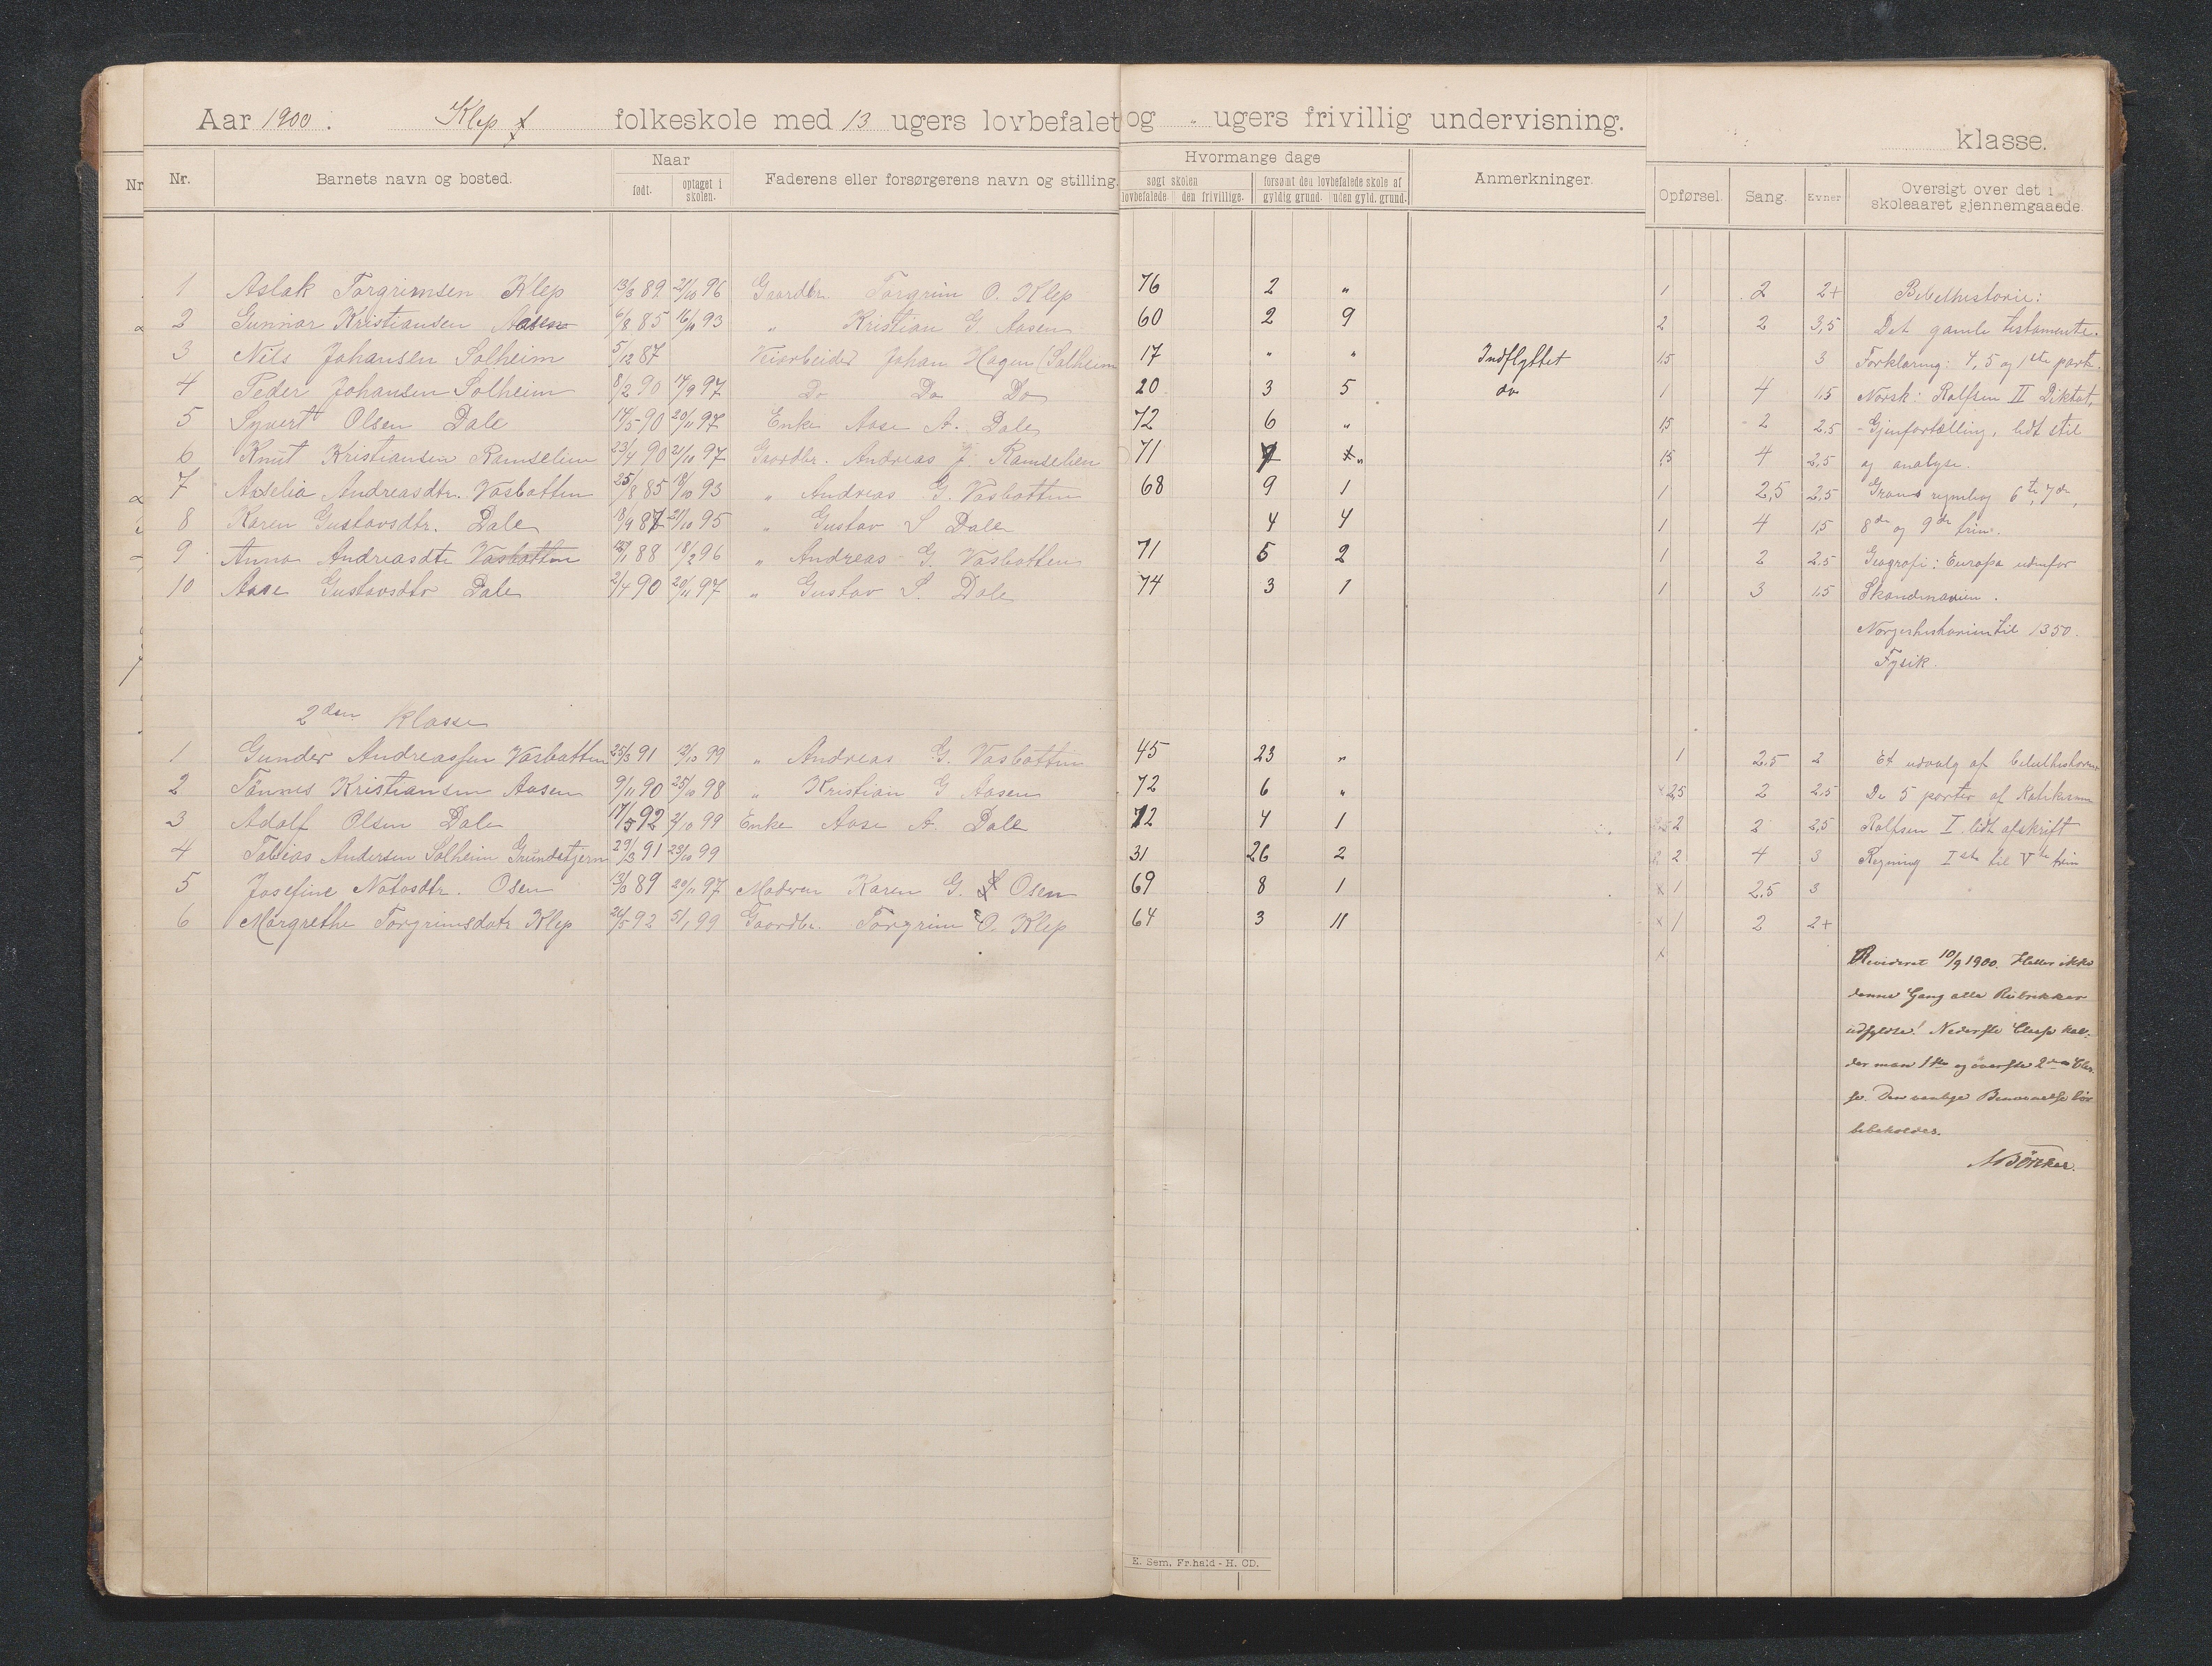 Aar 1900. Klep folkeskole med 13 ugers lovbefalet og " ugers frivillig undervisning.
klasse.
Nr.
Nr. Barnets navn og bosted. Naar født. optaget i skolen. Faderens eller forsørgerens navn og stilling. Hvormange dage søgt skolen lovbefalede den frivillige. forsømt den lovbefalede skole af gyldig grund. uden gyld. grund. Anmerkninger. Opførsel. Sang. Evner Oversigt over det i skoleaaret gjennemgaaede.
1 Aslak Torgrimsen Klep 13/3 89 21/10 96 Gaardbr. Torgrim O. Klep 76 2 " 1 2 2+ Bibelhistorie:
2 Gunnar Kristiansen Aasen 6/8 85 16/10 93 " Kristian G. Aasen 60 2 9 2 2 3,5 Det gamle testamente.
3 Nils Johansen Solheim 5/12 87 Veiarbeider Johan Hagen (Solheim 17 " " Indflyttet 1,5 3 Forklaring: 4, 5 og 1ste part.
4 Peder Johansen Solheim 8/2 90 14/9 97 Do Do Do 20 3 5 do 1 4 1,5 Norsk: Rolfsen II Diktat,
5 Syvert Olsen Dale 14/5 90 20/11 97 Enke Aase A. Dale 72 6 " 1,5 2 2,5 Gjenfortælling, lidt stil
6 Knut Kristiansen Ramselien 23/4 90 21/10 97 Gaardbr. Andreas J. Ramselien 71 7 " 1,5 4 2,5 og analyse.
7 Aaselia Andreasdtr. Vasbotten 25/8 85 18/10 93 " Andreas G. Vasbotten 68 9 1 1 2,5 2,5 6te, 7de,
8 Karen Gustavsdtr. Dale 18/9 87 21/10 95 " Gustav S Dale 4 4 1 4 1,5 8de og 9de trin.
9 Anna Andreasdtr Vasbotten 1/1 88 18/2 96 " Andreas G. Vasbotten 71 5 2 1 2 2,5 Geografi: Europa udenfor
10 Aase Gustavsdtr Dale 2/4 90 20/11 97 " Gustav S. Dale 74 3 1 1 3 1,5 Skandinavien.
Norgeshistorien til 1350.
Fysik.
2den klasse
1 Gunder Andreassen Vasbotten 25/3 91 2/10 99 " Andreas G. Vasbotten 45 23 " 1 2,5 2 Et udvalg af bibelhistorien
2 Tønnes Kristiansen Aasen 9/11 90 25/10 98 " Kristian G Aasen 72 6 " 2,5 2 2,5 De 5 parter af Katekismen
3 Adolf Olsen Dale 17/5 92 2/10 99 Enke Aase A. Dale 72 4 1 2 2 2,5 Rolfsen I lidt afskrift
4 Tobias Andersen Solheim Grundetjern 29/3 91 23/10 99 31 26 2 2 4 3 Regning Iste til Vte trin
5 Josefine Notosdtr. Osen 13/3 89 20/11 97 Moderen Karen G. Osen 69 8 1 1 2,5 3
6 Margrethe Torgrimsdatr Klep 26/5 92 5/1 99 Gaardbr. Torgrim O. Klep 64 3 11 1 2 2+
Revideret 10/9 1900. Heller ikke
denne Gang alle Rubrikker
udfyldte! Nederste Classe kal-
der man 1ste og øverste 2den Clas-
se. Den vanlige Benævnelse bør
bibeholdes.
E. Sem, Fr.hald - H. CD.